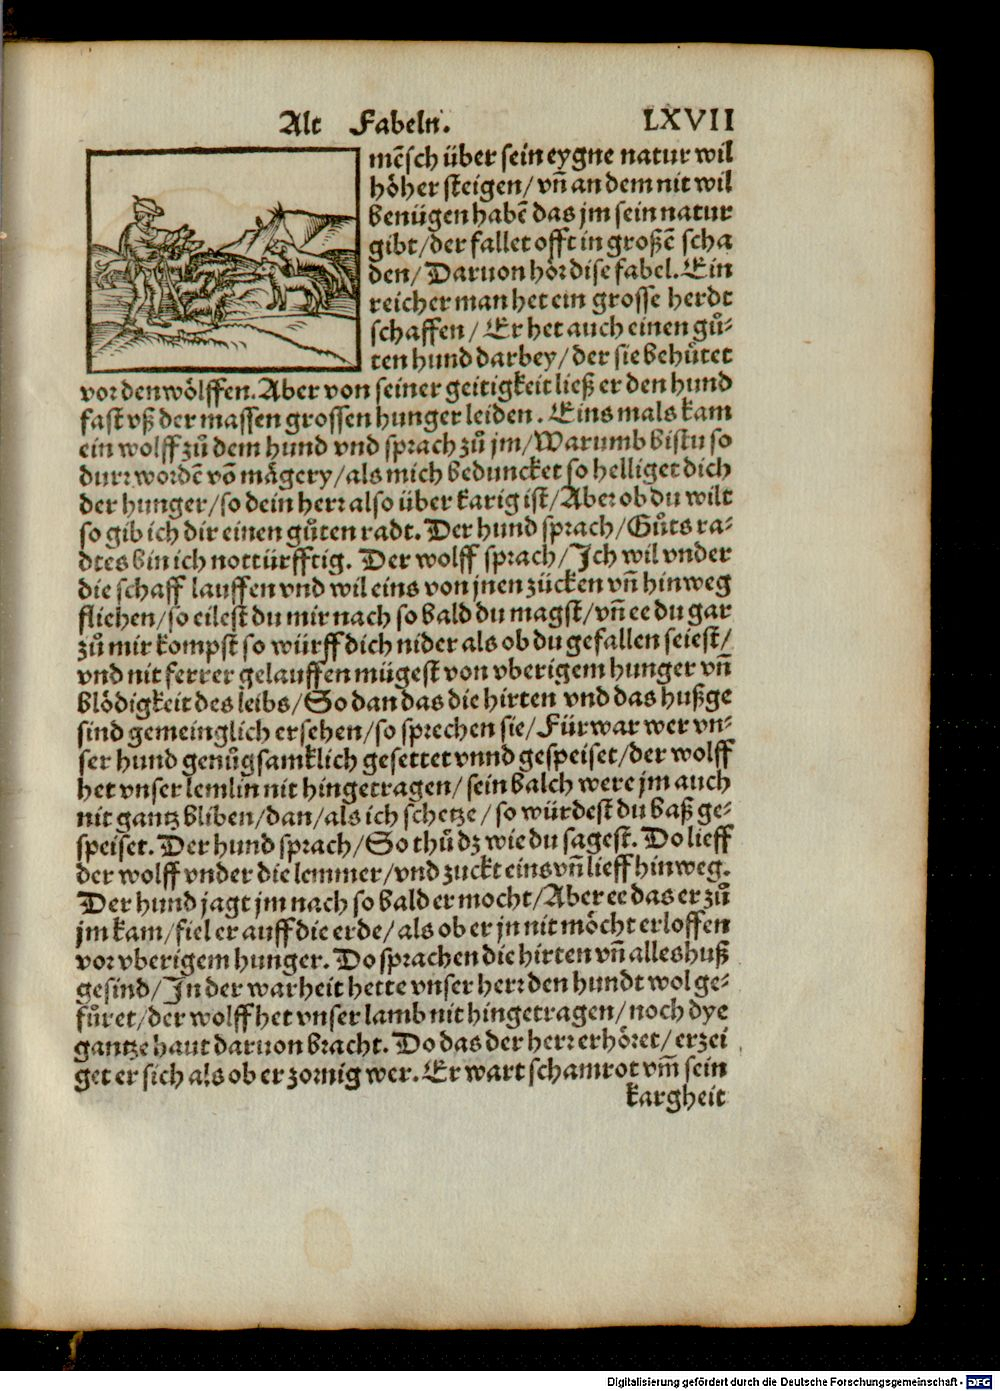 Alt Fabeln. LXVII
mēsch über sein eygne natur wil
höher steigen/ vn̄ an dem nit wil
benügen habē das jm sein natur
gibt/ der fallet offt in großē scha
den/ Daruon hör dise fabel. Ein
reicher man het ein grosse herdt
schaffen/ Er het auch einen gů-
ten hund darbey/ der sie behůtet
vor den wölffen. Aber von seiner geitigkeit ließ er den hund
fast vß der massen grossen hunger leiden. Eins mals kam
ein wolff zů dem hund vnd sprach zů jm/ Warumb bistu so
durr wordē vō mägery/ als mich beduncket so helliget dich
der hunger/ so dein herr also über karig ist/ Aber ob du wilt
so gib ich dir einen gůten radt. Der hund sprach/ Gůts ra-
dtes bin ich nottürfftig. Der wolff sprach/ Ich wil vnder
die schaff lauffen vnd wil eins von jnen zücken vn̄ hinweg
fliehen/ so eilest du mir nach so bald du magst/ vn̄ ee du gar
zů mir kompst so würff dich nider als ob du gefallen seiest/
vnd nit ferrer gelauffen mügest von vberigem hunger vn̄
blödigkeit des leibs/ So dan das die hirten vnd das hußge
sind gemeinglich ersehen/ so sprechen sie/ Fürwar wer vn-
ser hund genůgsamklich gesettet vnnd gespeiset/ der wolff
het vnser lemlin nit hingetragen/ sein balch were jm auch
nit gantz bliben/ dan/ als ich schetze/ so würdest du baß ge-
speiset. Der hund sprach/ So thů dz wie du sagest. Do lieff
der wolff vnder die lemmer/ vnd zuckt eins vn̄ lieff hinweg.
Der hund jagt jm nach so bald er mocht/ Aber ee das er zů
jm kam/ fiel er auff die erde/ als ob er jn nit möcht erloffen
vor vberigem hunger. Do sprachen die hirten vn̄ alles huß
gesind/ In der warheit hette vnser herr den hundt wol ge-
fůret/ der wolff het vnser lamb nit hingetragen/ noch dye
gantze haut daruon bracht. Do das der herr erhöret/ erzei
get er sich als ob er zornig wer. Er wart schamrot vm̄ sein
kargheit
Digitalisierung gefördert durch die Deutsche Forschungsgemeinschaft - DFG